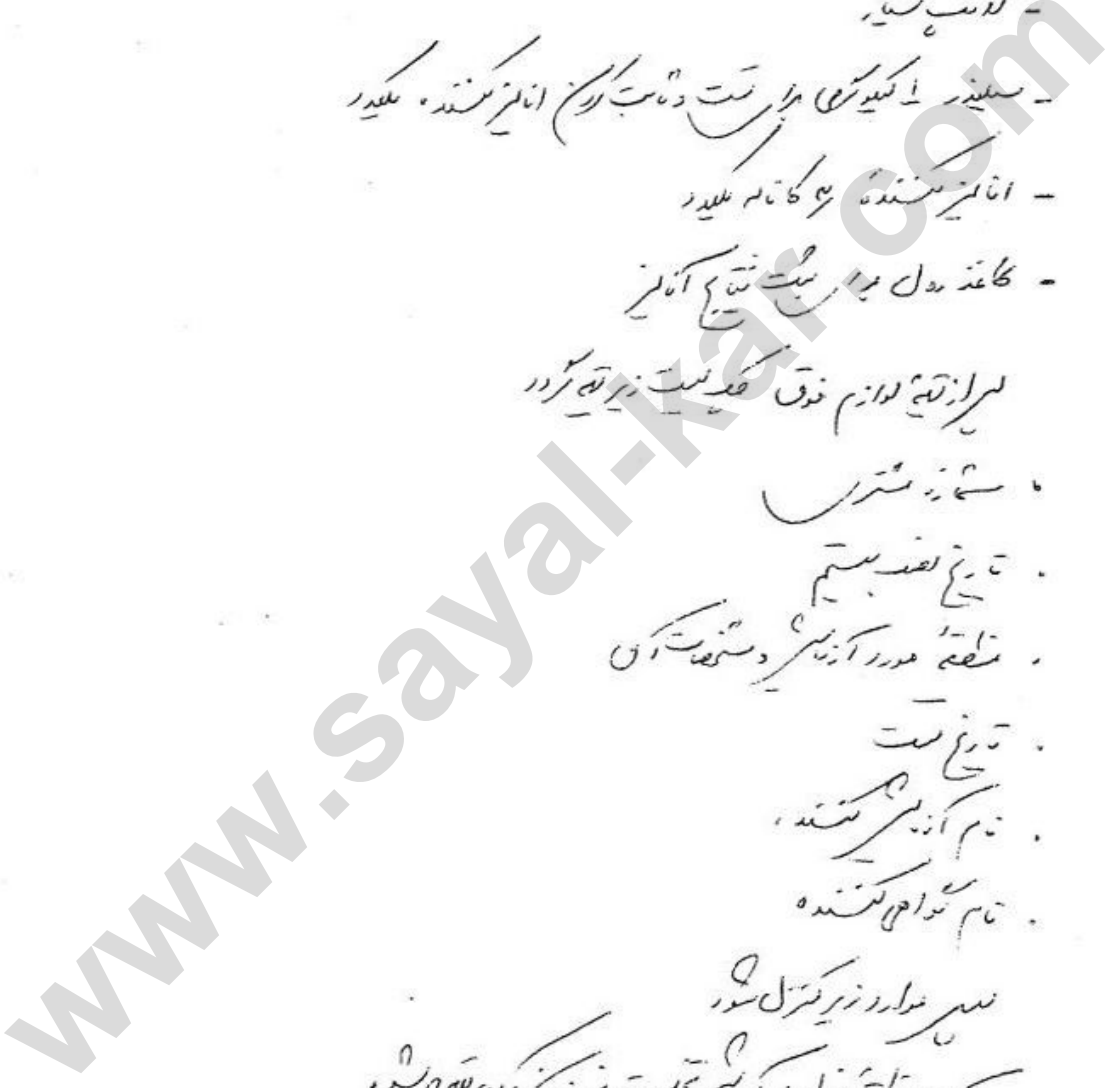 - سیلندر 1 کیلوگرمی برای تست و ثابت کردن انالیز کننده یکعدد
- انالیز کننده 3 کاناله یکعدد
- کاغذ رول برای ثبت نتایج آنالیز
پس از تهیهٔ لوازم فوق چک لیست زیر تهیه گردد
• شماره مشتری
• تاریخ نصب سیستم
• منطقهٔ مورد آزمایش و مشخصات آن
• تاریخ تست
• نام آزمایش کننده
• نام گواهی کننده
سپس موارد زیر کنترل شود
www.sayal-kar.com